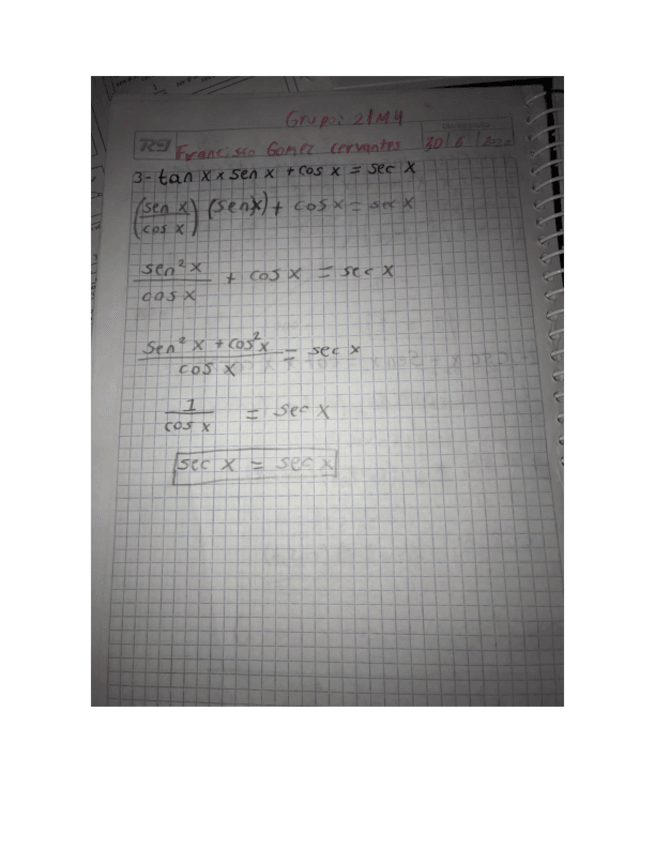 Grupo: 21M4
Francisco Gomez Cervantes 30/6/2020
3- tan x x sen x + cos x = sec x
(sen x / cos x) (sen x) + cos x = sec x
sen² x / cos x + cos x = sec x
sen² x + cos² x / cos x = sec x
1 / cos x = sec x
sec x = sec x